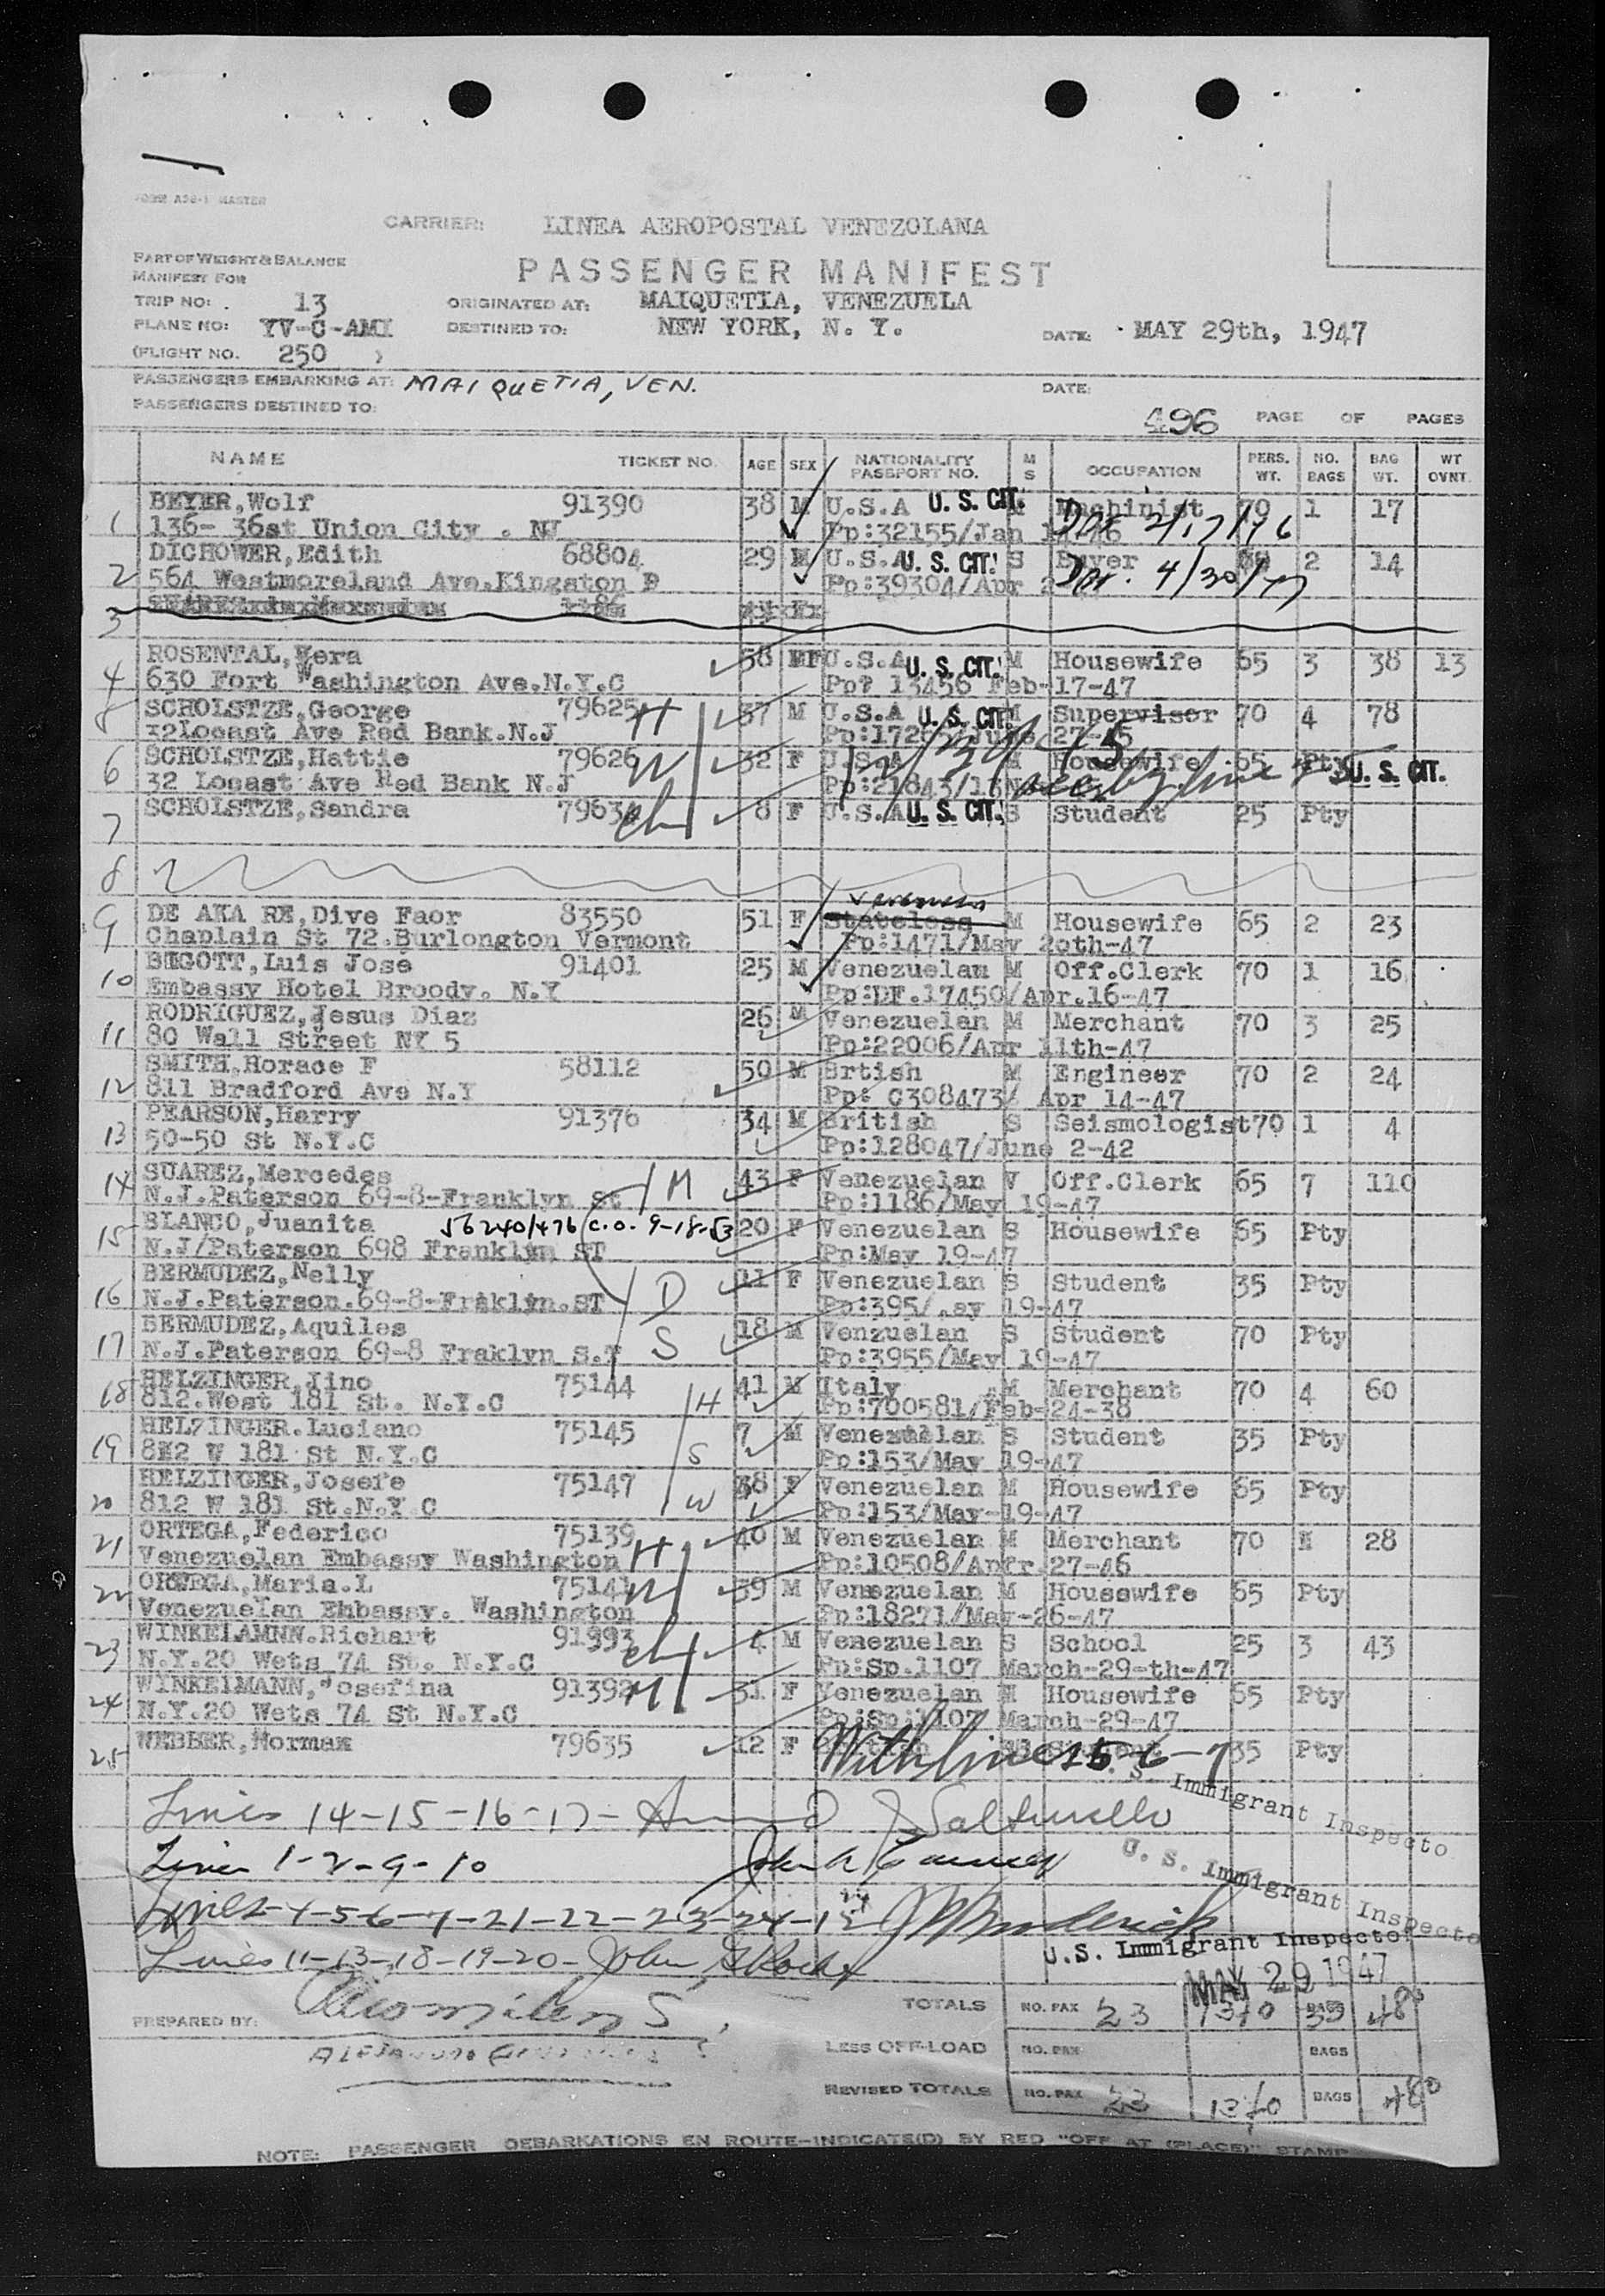 FORM A36-1 MASTER
CARRIER: LINEA AEROPOSTAL VENEZOLANA
PART OF WEIGHT & BALANCE
MANIFEST FOR
PASSENGER MANIFEST
TRIP NO: 13 ORIGINATED AT: MAIQUETIA, VENEZUELA
PLANE NO: YV-C-AMX DESTINED TO: NEW YORK, N. Y. DATE: MAY 29th, 1947
(FLIGHT NO. 250 )
PASSENGERS EMBARKING AT: MAIQUETIA, VEN. DATE:
PASSENGERS DESTINED TO:
496 PAGE OF PAGES
NAME TICKET NO. AGE SEX NATIONALITY PASSPORT NO. M S OCCUPATION PERS. WT. NO. BAGS BAG WT. WT OVNT.
1 BEYER,Wolf 91390 38 M U.S.A U. S. CIT. Machinist 70 1 17
136- 36st Union City . NJ Pp:32155/Jan
2 DICHOWER,Edith 68804 29 U.S.A U. S. CIT. S Buyer 2 14
564 Westmoreland Ave.Kingston P Pp:39304/Apr 4/30/47
3
4 ROSENTAL,Vera 58 F U.S.A U. S. CIT. M Housewife 65 3 38 13
630 Fort Washington Ave.N.Y.C Pp? 13456 Feb-17-47
5 SCHOLSTZE,George 79625 H 37 M U.S.A U. S. CIT. M Supervisor 70 4 78
32Locast Ave Red Bank.N.J
6 SCHOLSTZE,Hattie 79626 W 32 F U.S.A M Housewife 65 Pty U. S. CIT.
32 Locast Ave Red Bank N.J Pp:21843/
7 SCHOLSTZE,Sandra ch 8 F U.S.A U. S. CIT. S Student 25 Pty
8
9 DE AKA RE,Dive Faor 83550 51 F Stateless M Housewife 65 2 23
Chaplain St 72.Burlongton Vermont Pp:1471/May 20th-47
10 BEGOTT,Luis Jose 91401 25 M Venezuelan M Off.Clerk 70 1 16
Embassy Hotel Broody. N.Y Pp:DF.17450/Apr.16-47
11 RODRIGUEZ,Jesus Diaz 26 M Venezuelan M Merchant 70 3 25
80 Wall Street NY 5 Pp:22006/Apr 11th-47
12 SMITH,Horace F 58112 50 M Brtish M Engineer 70 2 24
811 Bradford Ave N.Y Pp: C308473/ Apr 14-47
13 PEARSON,Harry 91376 34 M British S Seismologist 70 1 4
50-50 St N.Y.C Pp:128047/June 2-42
14 SUAREZ,Mercedes M 43 F Venezuelan V Off.Clerk 65 7 110
N.J.Paterson 69-8-Franklyn St Pp:1186/May 19-47
15 BLANCO,Juanita 56240/476 C.O. 9-18-53 20 F Venezuelan S Housewife 65 Pty
N.J/Paterson 698 Franklyn ST Pp:May 19-47
16 BERMUDEZ,Nelly D 11 F Venezuelan S Student 35 Pty
N.J.Paterson.69-8-Fraklyn.ST Pp:395/.ay 19-47
17 BERMUDEZ,Aquiles S 18 M Venzuelan S Student 70 Pty
N.J.Paterson 69-8 Fraklyn S.T Pp:3955/May 19-47
18 HELZINGER,Jino 75144 H 41 M Italy M Merchant 70 4 60
812.West 181 St. N.Y.C Pp:700581/Feb-24-38
19 HELZINGER.Luciano 75145 S 7 M Venezuelan S Student 35 Pty
812 W 181 St N.Y.C Pp:153/May 19-47
20 HELZINGER,Josefe 75147 W 38 F Venezuelan M Housewife 65 Pty
812 W 181 St.N.Y.C Pp:153/May-19-47
21 ORTEGA,Federico 75139 H 40 M Venezuelan M Merchant 70 28
Venezuelan Embassy Washington Pp:10508/Apfr.27-46
22 ORTEGA,Maria.L 75141 W 39 M Venezuelan M Housewife 65 Pty
Venezuelan Embassy. Washington Pp:18271/May-26-47
23 WINKELAMNN.Richart 91993 ch 4 M Venezuelan S School 25 3 43
N.Y.20 Wets 74 St. N.Y.C Pp:Sp.1107 March-29-th-47
24 WINKELMANN,Josefina 91392 M 31 F Venezuelan M Housewife 65 Pty
N.Y.20 Wets 74 St N.Y.C Pp:Sp:1107 March-29-47
25 WEBBER,Norman 79635 12 F With lines 5-6-7 35 Pty
U. S. Immigrant Inspecto
Lines 14-15-16-17-
U. S. Immigrant Inspecto
Lines 1-2-9-10
Lines-4-5-6-7-21-22-23-24-12
U.S. Immigrant Inspector
Lines 11-13-18-19-20- John
MAY 29 1947
TOTALS NO. PAX 23 1370 BAGS 33 480
PREPARED BY:
LESS OFF-LOAD NO. PAX BAGS
REVISED TOTALS NO. PAX 23 1370 BAGS 480
NOTE: PASSENGER DEBARKATIONS EN ROUTE-INDICATE(D) BY RED "OFF AT (PLACE)" STAMP